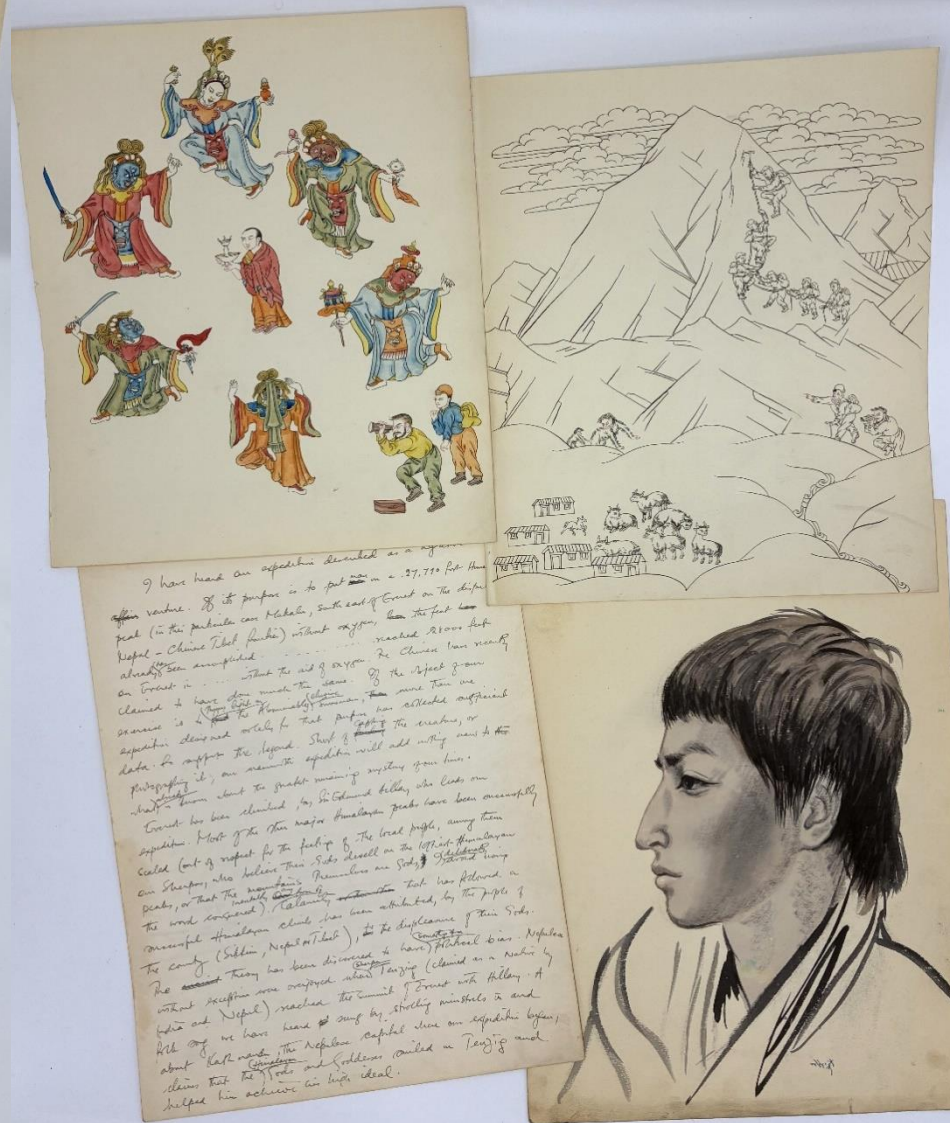 I have heard our expedition described as a
venture. If its purpose is to put man on a 27,790 foot
peak (in this particular case Makalu, south east of Everest on the
Nepal - Chinese Tibet frontier) without oxygen, the feat
already been accomplished reached 28000 feet
on Everest in without the aid of oxygen. The Chinese have recently
claimed to have done much the same. If the object of our
exercise is the Abominable Snowman, more than one
expedition designed solely for that purpose has collected sufficient
data to support the legend. Short of the creature, or
photographing it, our mammoth expedition will add nothing new to
what is known about the greatest remaining mystery of our times.
Everest has been climbed, by Sir Edmund Hillary who leads our
expedition. Most of the other major Himalayan peaks have been successfully
scaled (out of respect for the feelings of the local people, among them
our Sherpas, who believe their Gods dwell on the loftiest Himalayan
peaks, or that the mountains themselves are Gods, I avoid using
the word conquered). Calamity that has followed a
successful Himalayan climb has been attributed, by the people of
the country (Sikkim, Nepal or Tibet), to the displeasure of their Gods.
The theory has been discovered to have political bias. Nepalese
without exception were overjoyed when Tenzing (claimed as a native by
India and Nepal) reached the summit of Everest with Hillary. A
folk song we have heard sung by strolling minstrels in and
about Kathmandu, the Nepalese capital where our expedition began,
claims that the Himalayan Gods and Goddesses smiled on Tenzing and
helped him achieve his high ideal.